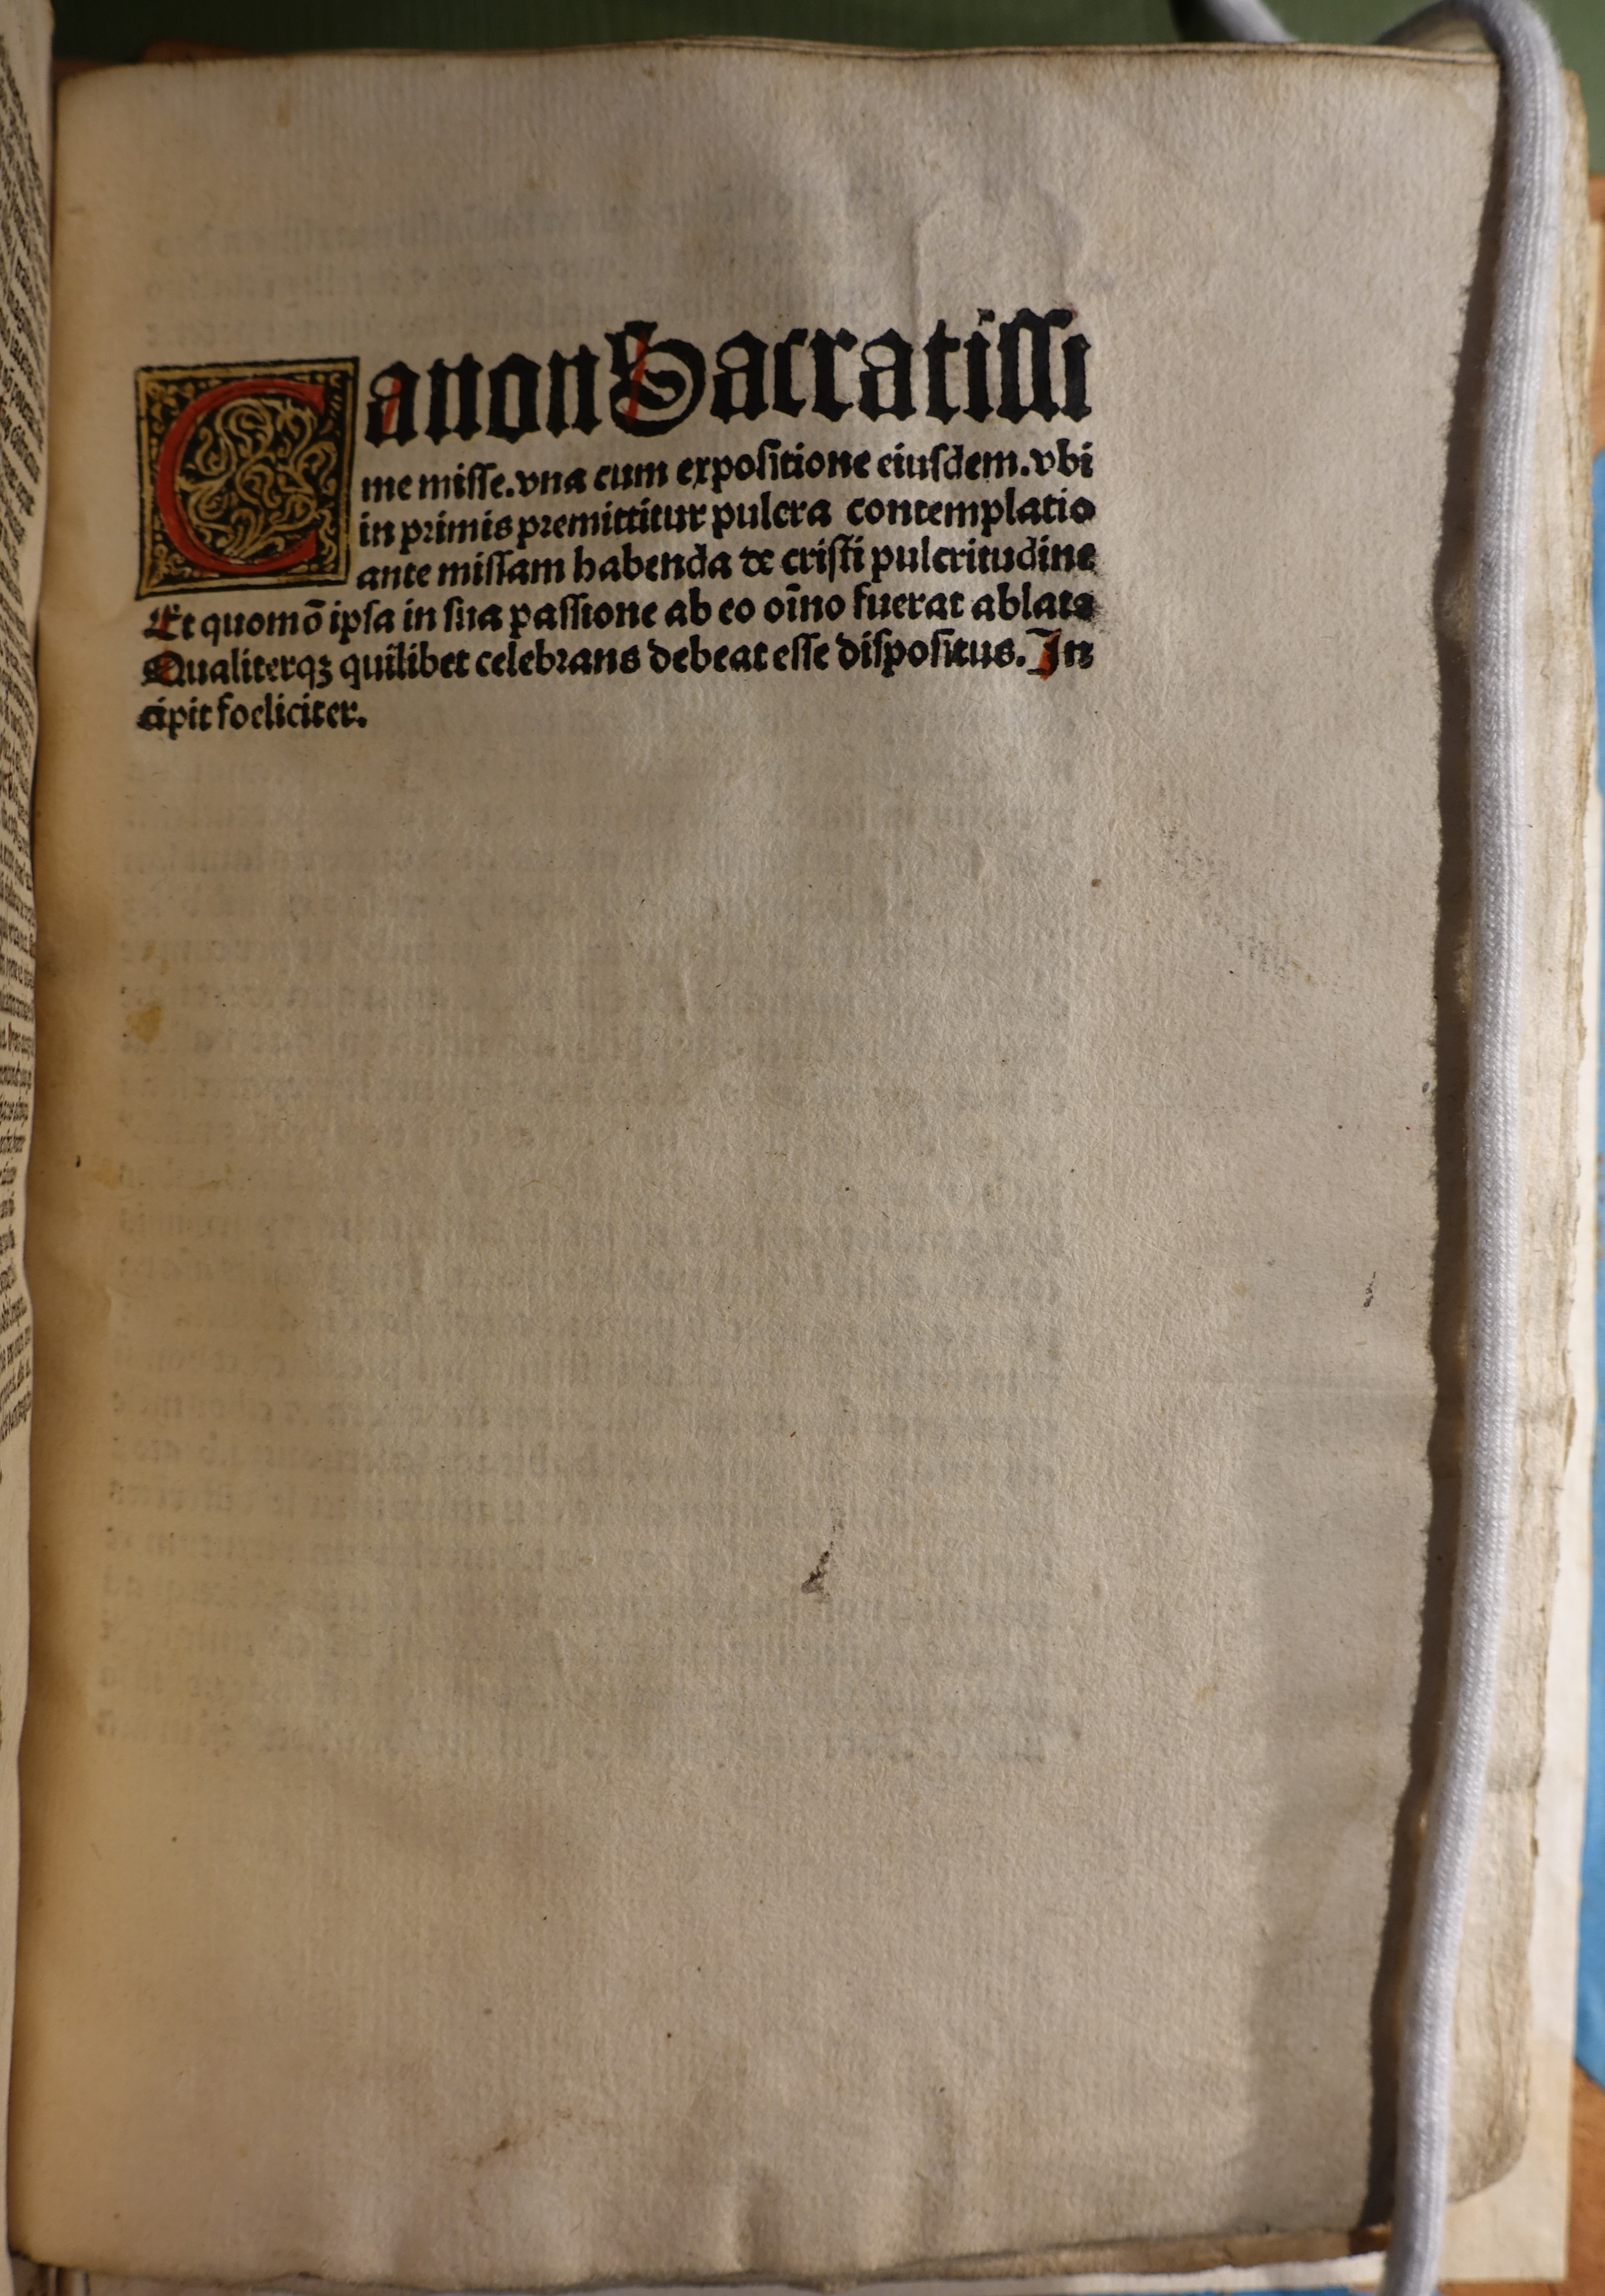 Canon Sacratissi
me misse. vna cum expositione eiusdem. vbi
in primis premittitur pulcra contemplatio
ante missam habenda de cristi pulcritudine
Et quomō ipsa in sua passione ab eo oīno fuerat ablata
Qualiterqꝫ quilibet celebrans debeat esse dispositus. In
cipit foeliciter.